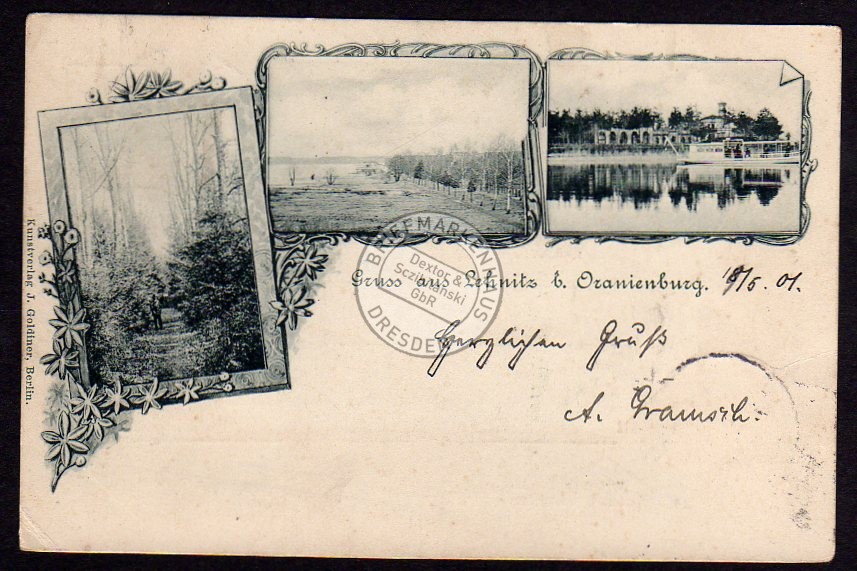 Gruss aus Lehnitz b. Oranienburg. 19/5. 01.
Herzlichen Gruß
A. Gramsch.
Kunstverlag J. Goldiner, Berlin.
BRIEFMARKENHAUS
Dextor &
Sczibilanski
GbR
DRESDEN